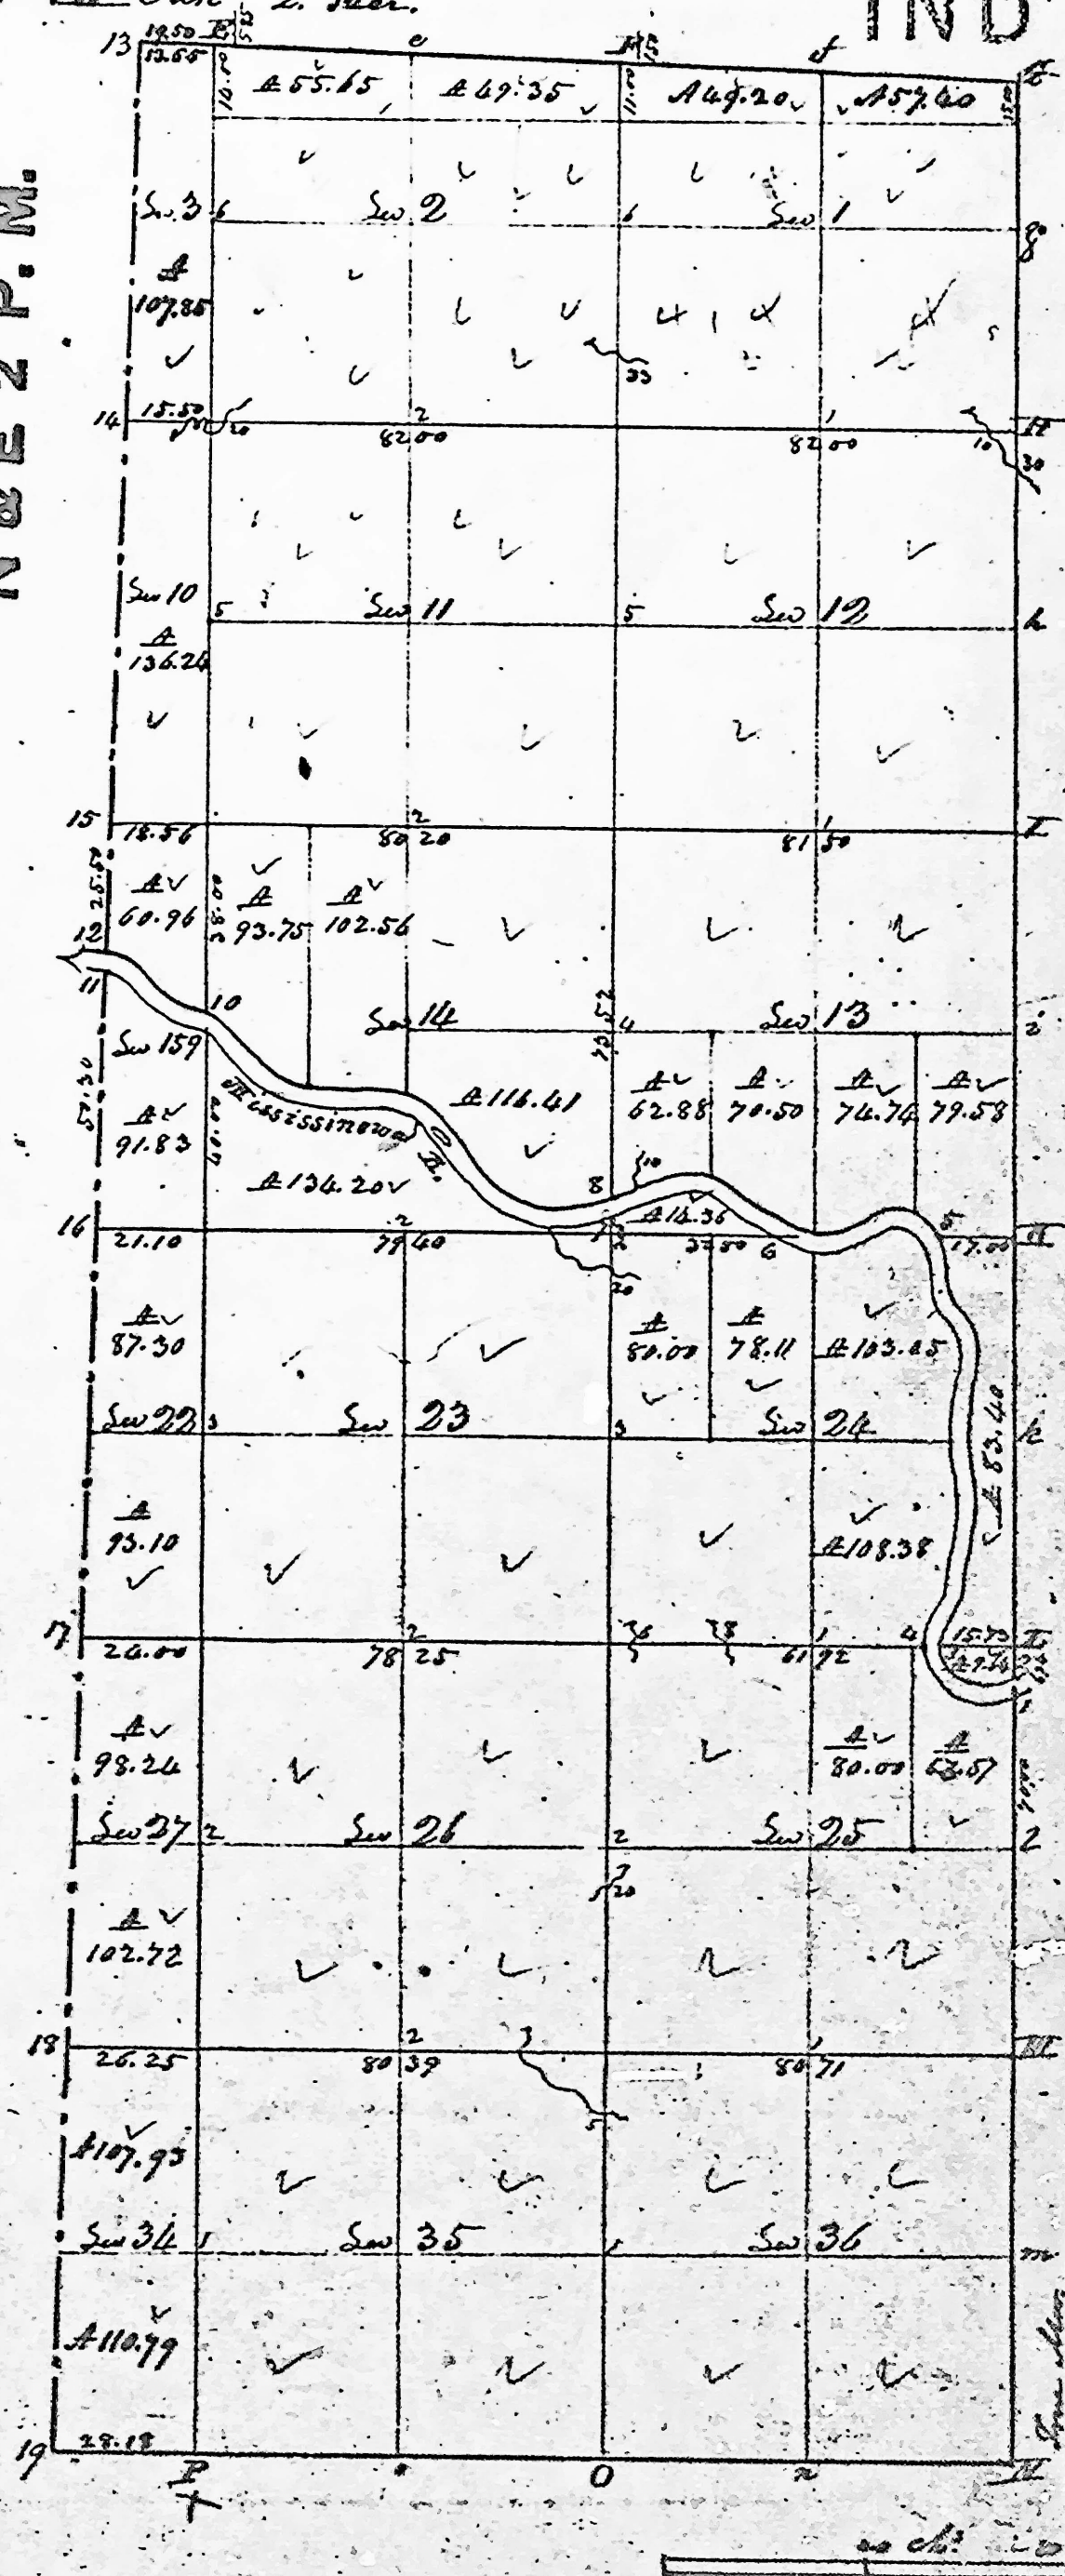 IND
N & E 2 P. M.
13
19.50
A 55.65
A 49.35
A 49.20
A 57.40
Sec 3
6
Sec 2
6
Sec 1
g
A
107.85
33
14
15.50
20
2
82 00
1
82 00
10
H
30
Sec 10
5
Sec 11
5
Sec 12
h
A
136.24
15
18.56
2
80 20
1
81 50
I
25.50
A
60.96
38.00
A
93.75
A
102.56
12
11
10
Sec 159
Sec 14
4
Sec 13
i
57.30
A
91.83
Mississinewa R.
A 116.41
A
62.88
A
70.50
A
74.74
A
79.58
A 134.20
8
10
A 14.36
16
21.10
2
79 40
6
5
17.00
20
A
87.30
A
80.00
A
78.11
A 103.05
Sec 22
3
Sec 23
3
Sec 24
k
A 83.40
A
93.10
A 108.38
17
24.00
2
78 25
1
61 92
4
15.73
L
A
98.24
A
80.00
A
Sec 27
2
Sec 26
2
Sec 25
20
A
102.72
18
26.25
2
80 39
1
80 71
M
A 107.93
Sec 34
1
Sec 35
1
Sec 36
m
A 110.79
19
28.18
P
O
n
N